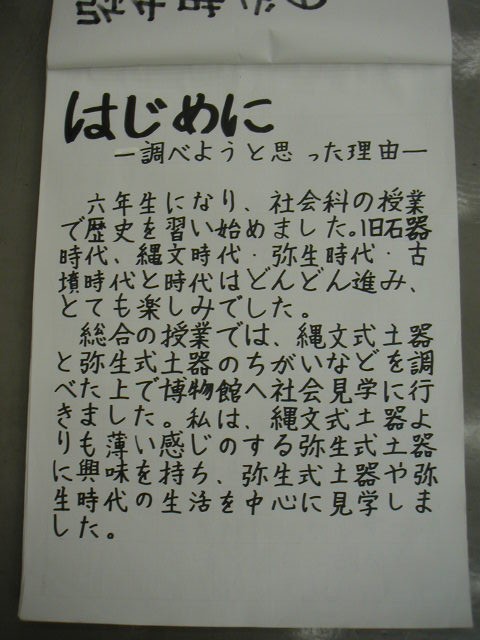 はじめに
―調べようと思った理由―
六年生になり、社会科の授業
で歴史を習い始めました。旧石器
時代、縄文時代・弥生時代・古
墳時代と時代はどんどん進み、
とても楽しみでした。
総合の授業では、縄文式土器
と弥生式土器のちがいなどを調
べた上で博物館へ社会見学に行
きました。私は、縄文式土器よ
りも薄い感じのする弥生式土器
に興味を持ち、弥生式土器や弥
生時代の生活を中心に見学しま
した。